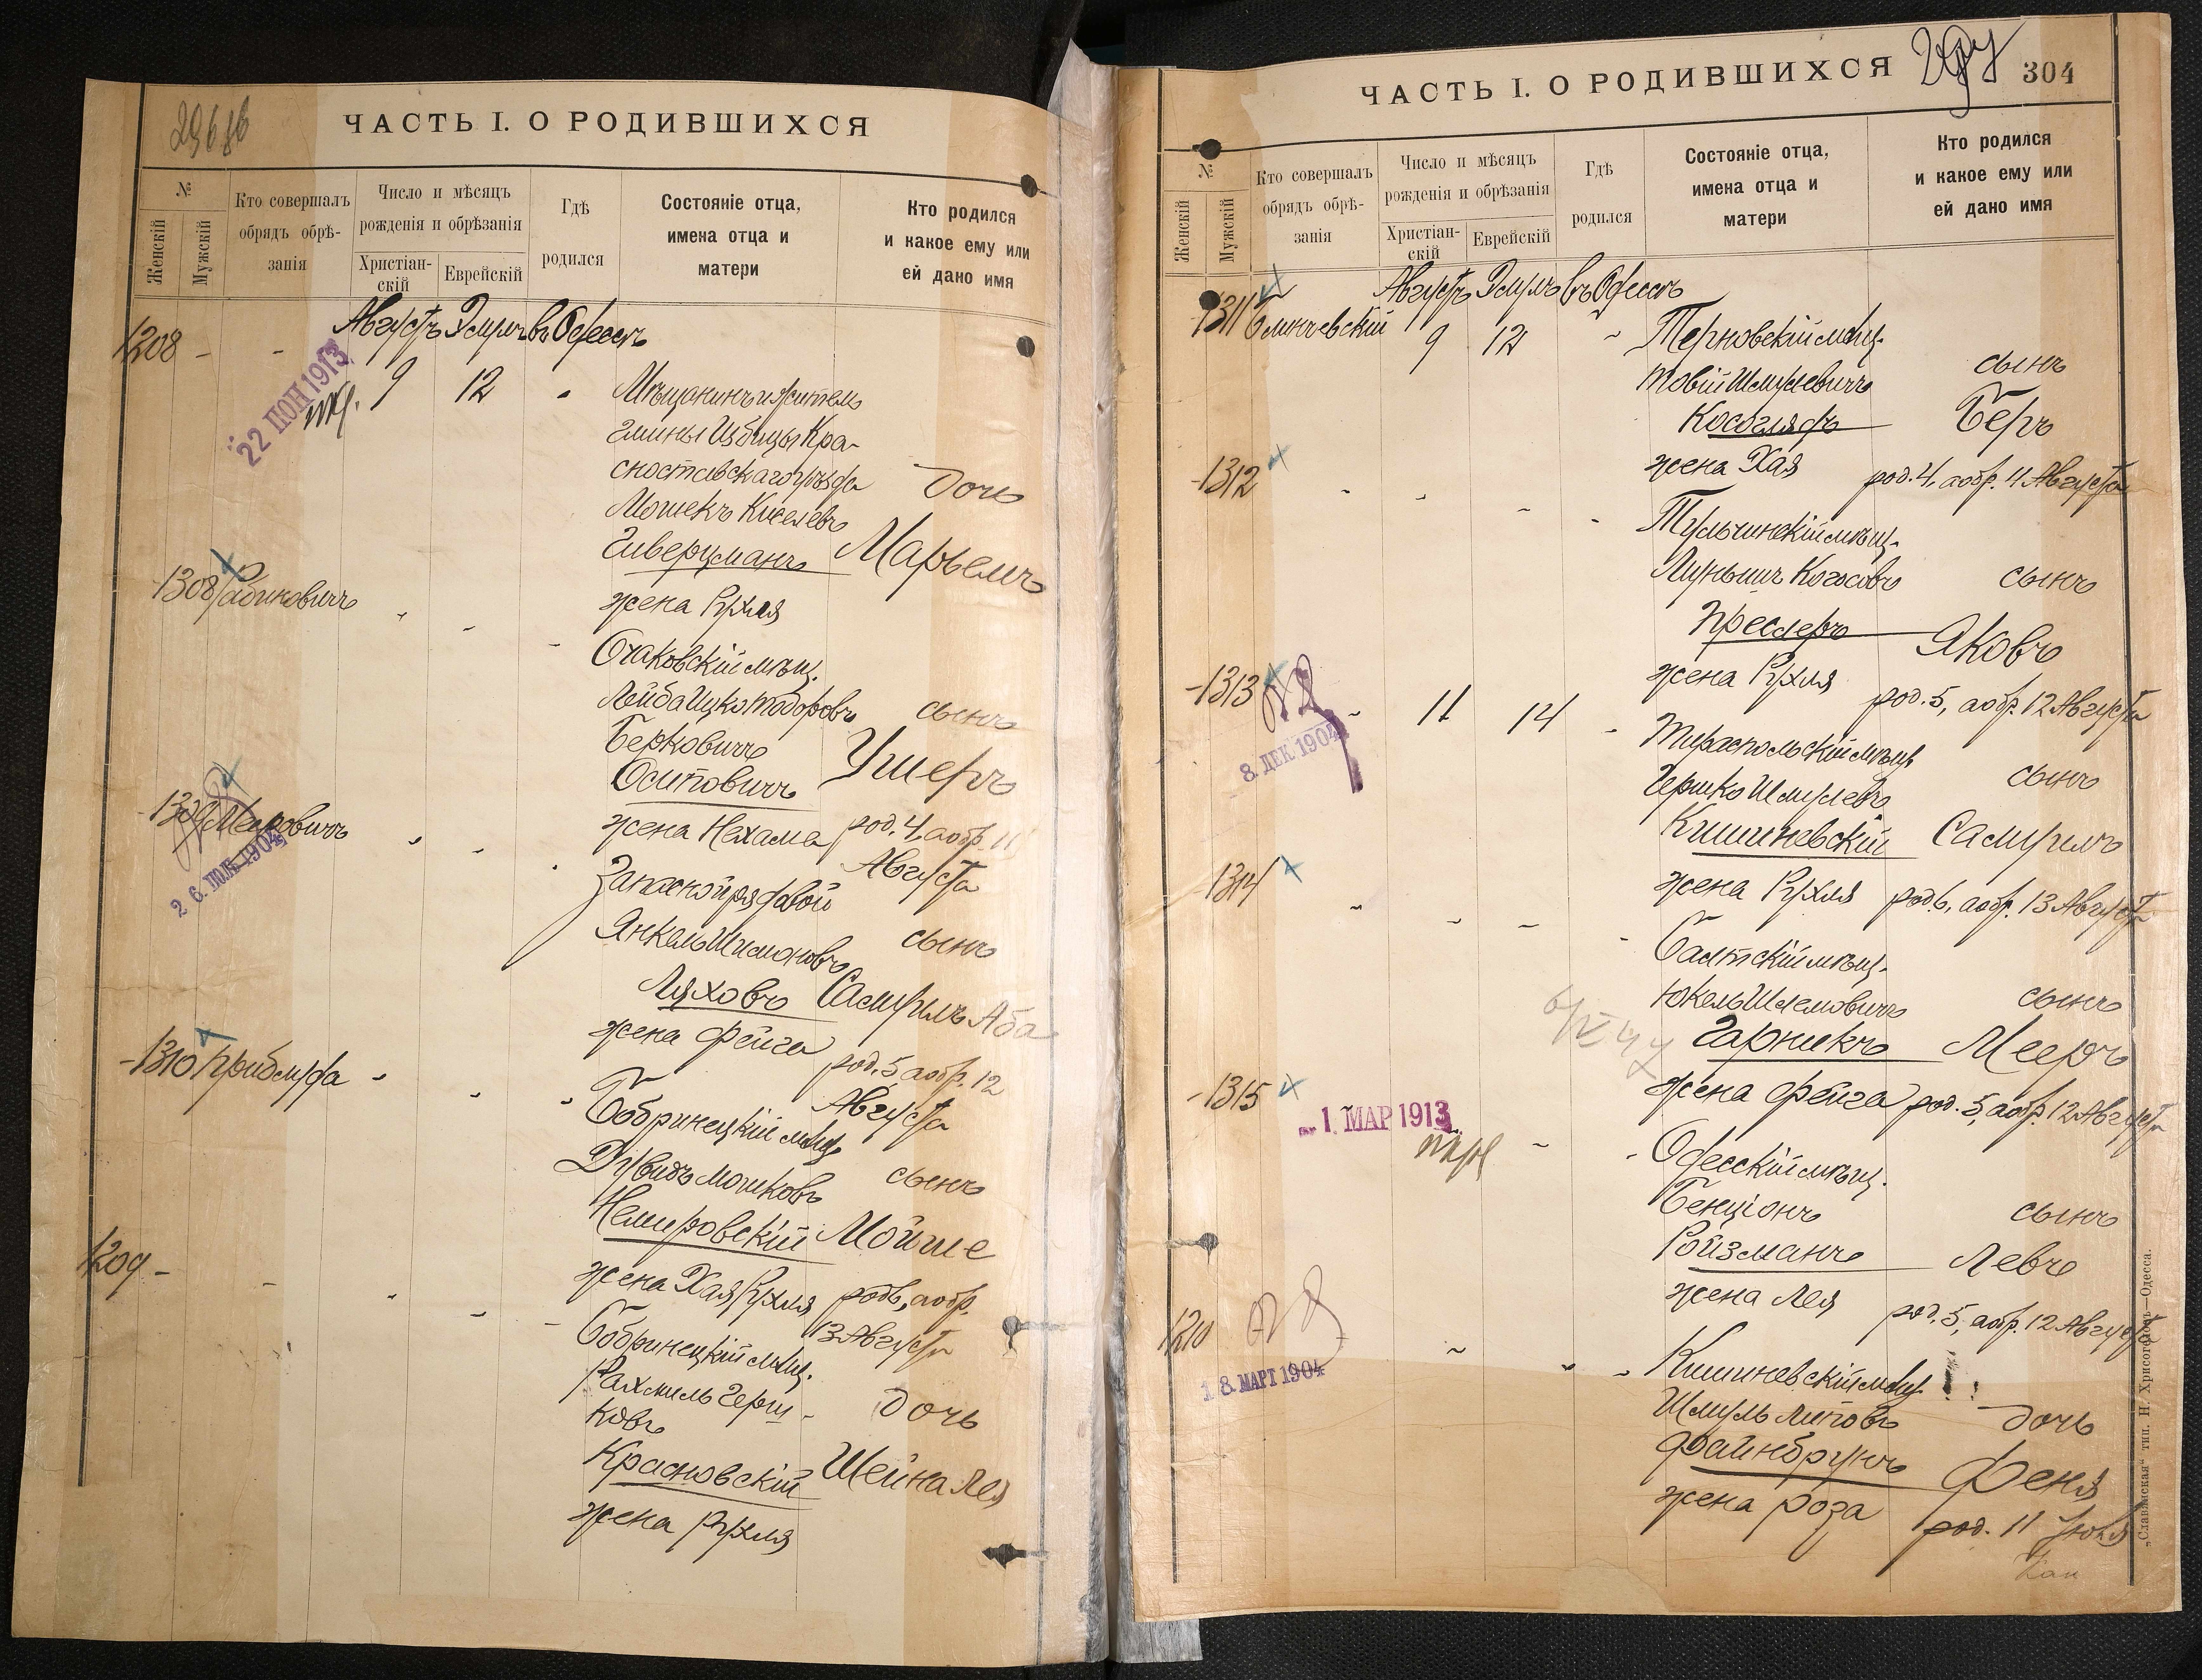 ЧАСТЬ I. О РОДИВШИХСЯ
№
Женскій
Мужскій
Кто совершалъ
обрядъ обрѣ-
занія
Число и мѣсяцъ
рожденія и обрѣзанія
Христіан-
скій
Еврейскій
Гдѣ
родился
Состояніе отца,
имена отца и
матери
Кто родился
и какое ему или
ей дано имя
Августъ Элулъ въ Одессѣ
1208 - -
22 ІЮН 1913
9 12
Мѣщанинъ и житель
гмины Избицы Кра-
сноставскаго уѣзда
Мошекъ Киселевъ
Гиверцманъ
жена Рухля
дочь
Марьемъ
1308 Рабиновичъ
Очаковскій мѣщ.
Лейба Ицко Тодоровъ
Берковичъ
Осиповичъ
жена Нехама
сынъ
Ушеръ
род. 4, а обр. 11
Августа
1309 Меровичъ
26. ІЮЛ. 1904
Запасной рядовой
Янкель Шимоновъ
Ляховъ
жена Фейга
сынъ
Самуилъ Аба
род. 5 а обр. 12
Августа
1310 Прибслуда
Бобринецкій мѣщ.
Дувидъ Мошковъ
Немировскій
жена Хая Рухля
сынъ
Мойше
род 6, а обр.
13 Августа
1209 - -
Бобринецкій мѣщ.
Рахмиль Герш-
ковъ
Красновскій
жена Рухля
дочь
Шейна Лея
ЧАСТЬ I. О РОДИВШИХСЯ
304
№
Женскій
Мужскій
Кто совершалъ
обрядъ обрѣ-
занія
Число и мѣсяцъ
рожденія и обрѣзанія
Христіан-
скій
Еврейскій
Гдѣ
родился
Состояніе отца,
имена отца и
матери
Кто родился
и какое ему или
ей дано имя
Августъ Элулъ въ Одессѣ
1311
9 12
Терновскій мѣщ.
Товій Шмулевичъ
Косоглядъ
жена Хая
сынъ
Беръ
род. 4, а обр. 11 Августа
1312
Тульчинскій мѣщ.
Пресперъ
жена Рухля
сынъ
Яковъ
род. 5, а обр. 12 Августа
1313
8. ДЕК 1904
11 14
Тираспольскій мѣщ
Гершко Шмулевъ
Кишиневскій
жена Рухля
сынъ
Самуилъ
род 6, а обр. 13 Августа
1314
Балтскій мѣщ.
Юкель Шлемовичъ
Гарникъ
жена Фейга
сынъ
Мееръ
род. 5, а обр. 12 Августа
1315
1. МАР 1913
Одесскій мѣщ.
Бенціонъ
Ройзманъ
жена Лея
сынъ
Левъ
род. 5, а обр. 12 Августа
1210
18. МАРТ 1904
Кишиневскій мѣщ
Шмуль Липовъ
Файнбрунъ
жена Роза
дочь
Феня
род. 11 Іюля
„Славянская“ тип. Н. Хрисогелосъ—Одесса.